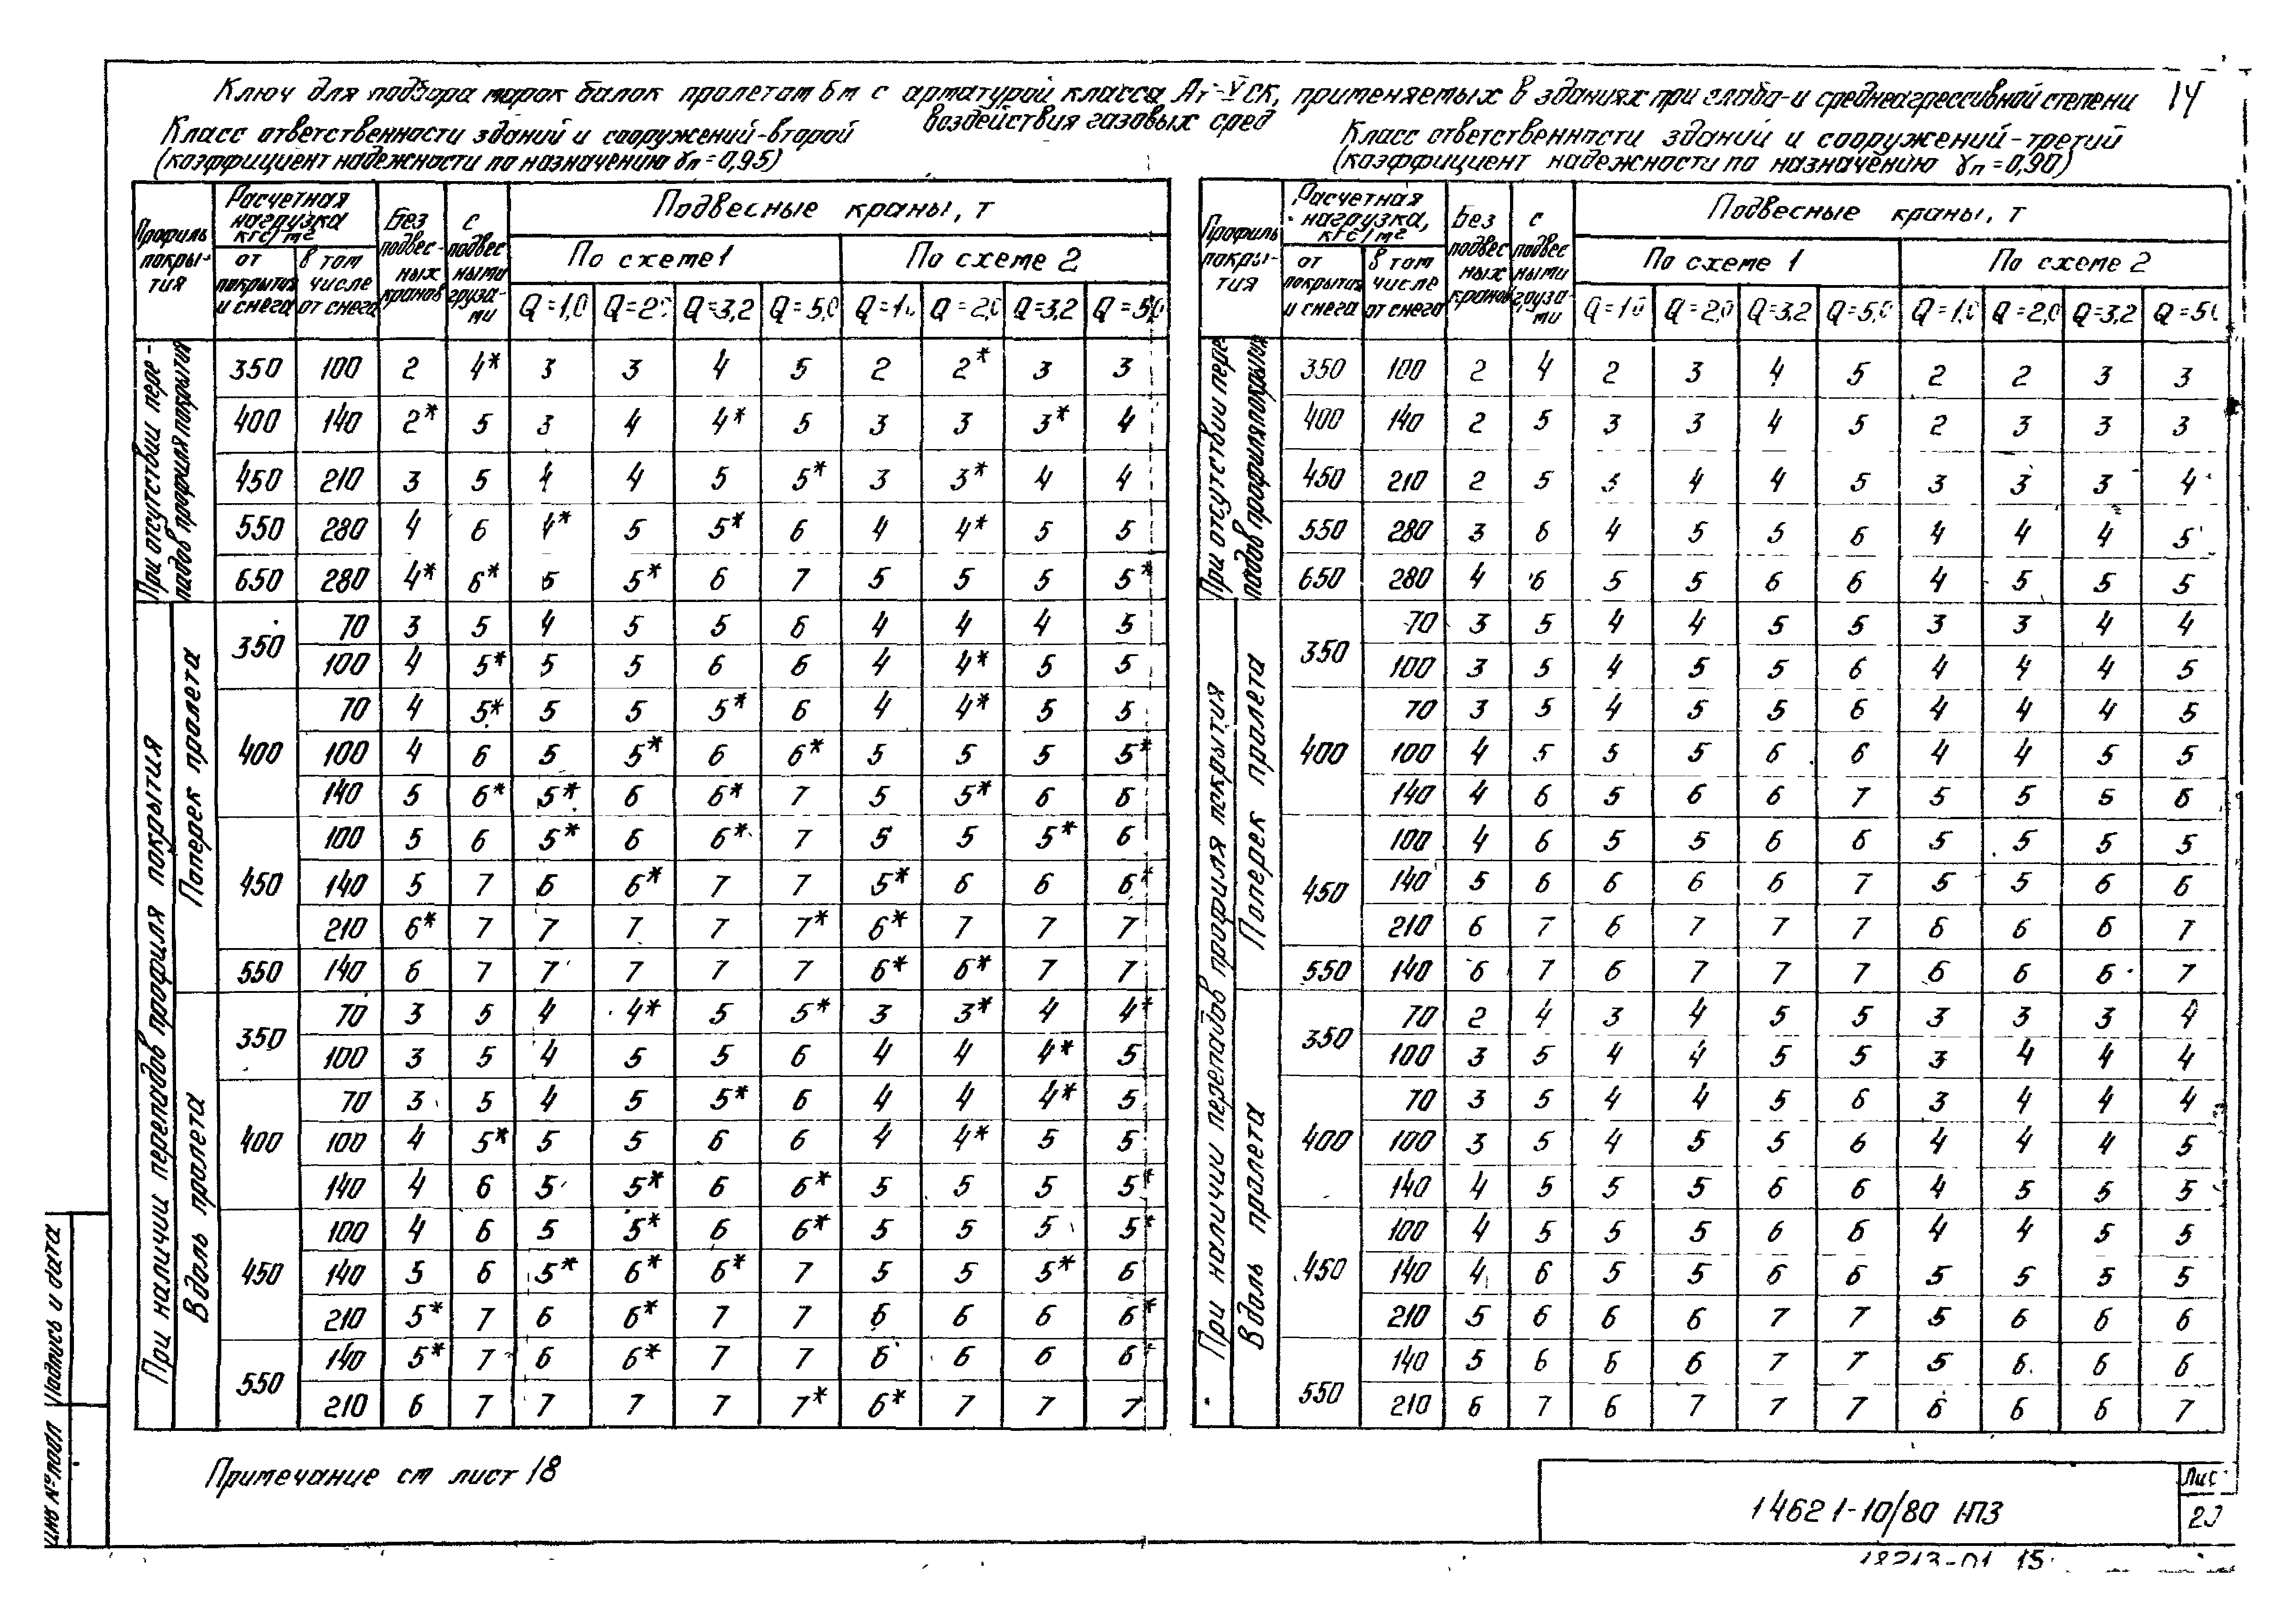 Ключ для подбора марок балок пролетом 6м с арматурой класса Ат-Vск, применяемых в зданиях при слабо- и среднеагрессивной степени 14
воздействия газовых сред
Класс ответственности зданий и сооружений-второй
(коэффициент надежности по назначению γп=0,95)
Профиль покры-тия | Расчетная нагрузка кгс/м² | Без подвес-ных кранов | с подвес ными груза-ми | Подвесные краны, т
от покрытия и снега | в том числе от снега | По схеме 1 | По схеме 2
Q=1,0 | Q=2 | Q=3,2 | Q=5,0 | Q=1,0 | Q=2,0 | Q=3,2 | Q=5,0
При отсутствии пере-падов профиля покрытия
350 100 2 4* 3 3 4 5 2 2* 3 3
400 140 2* 5 3 4 4* 5 3 3 3* 4
450 210 3 5 4 4 5 5* 3 3* 4 4
550 280 4 6 4* 5 5* 6 4 4* 5 5
650 280 4* 6* 5 5* 6 7 5 5 5 5*
При наличии перепадов профиля покрытия
Поперек пролета
350 70 3 5 4 5 5 6 4 4 4 5
100 4 5* 5 5 6 6 4 4* 5 5
400 70 4 5* 5 5 5* 6 4 4* 5 5
100 4 6 5 5* 6 6* 5 5 5 5*
140 5 6* 5* 6 6* 7 5 5* 6 6
450 100 5 6 5* 6 6* 7 5 5 5* 6
140 5 7 6 6* 7 7 5* 6 6 6*
210 6* 7 7 7 7 7* 6* 7 7 7
550 140 6 7 7 7 7 7 6* 6* 7 7
Вдоль пролета
350 70 3 5 4 4* 5 5* 3 3* 4 4*
100 3 5 4 5 5 6 4 4 4* 5
400 70 3 5 4 5 5* 6 4 4 4* 5
100 4 5* 5 5 6 6 4 4* 5 5
140 4 6 5 5* 6 6* 5 5 5 5*
450 100 4 6 5 5* 6 6* 5 5 5 5*
140 5 6 5* 6* 6* 7 5 5 5* 6
210 5* 7 6 6* 7 7 6 6 6 6*
550 140 5* 7 6 6* 7 7 6 6 6 6*
210 6 7 7 7 7 7* 6* 7 7 7
Примечание см лист 18
Класс ответственности зданий и сооружений-третий
(коэффициент надежности по назначению γп=0,90)
Профиль покры-тия | Расчетная нагрузка, кгс/м² | Без подвес ных кранов | с подвес ными груза-ми | Подвесные краны, т
от покрытия и снега | в том числе от снега | По схеме 1 | По схеме 2
Q=1,0 | Q=2,0 | Q=3,2 | Q=5,0 | Q=1,0 | Q=2,0 | Q=3,2 | Q=5,0
При отсутствии пере падов профиля покрытия
350 100 2 4 2 3 4 5 2 2 3 3
400 140 2 5 3 3 4 5 2 3 3 3
450 210 2 5 3 4 4 5 3 3 3 4
550 280 3 6 4 5 5 6 4 4 4 5
650 280 4 6 5 5 6 6 4 5 5 5
При наличии перепадов профиля покрытия
Поперек пролета
350 70 3 5 4 4 5 5 3 3 4 4
100 3 5 4 5 5 6 4 4 4 5
400 70 3 5 4 5 5 6 4 4 4 5
100 4 5 5 5 6 6 4 4 5 5
140 4 6 5 6 6 7 5 5 5 6
450 100 4 6 5 5 6 6 5 5 5 5
140 5 6 6 6 6 7 5 5 6 6
210 6 7 6 7 7 7 6 6 6 7
550 140 6 7 6 7 7 7 6 6 6 7
Вдоль пролета
350 70 2 4 3 4 5 5 3 3 3 4
100 3 5 4 4 5 5 3 4 4 4
400 70 3 5 4 4 5 6 3 4 4 4
100 3 5 4 5 5 6 4 4 4 5
140 4 5 5 5 6 6 4 5 5 5
450 100 4 5 5 5 6 6 4 4 5 5
140 4 6 5 5 6 6 5 5 5 5
210 5 6 6 6 7 7 5 6 6 6
550 140 5 6 6 6 7 7 5 6 6 6
210 6 7 6 7 7 7 6 6 6 7
1 462 1-10/80 1ПЗ
Лис
18213-01 15
Инв № подл Подпись и дата